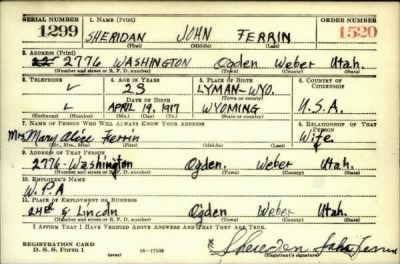 SERIAL NUMBER 1. NAME (Print) ORDER NUMBER
1299 SHERIDAN JOHN FERRIN 1520
(First) (Middle) (Last)
2. ADDRESS (Print)
2776 WASHINGTON Ogden Weber Utah.
(Number and street or R. F. D. number) (Town) (County) (State)
3. TELEPHONE 4. AGE IN YEARS 5. PLACE OF BIRTH 6. COUNTRY OF CITIZENSHIP
✓ 23 LYMAN-WYO.
DATE OF BIRTH (Town or county)
✓ APRIL 19, 1917 WYOMING U.S.A.
(Exchange) (Number) (Mo.) (Day) (Yr.) (State or country)
7. NAME OF PERSON WHO WILL ALWAYS KNOW YOUR ADDRESS 8. RELATIONSHIP OF THAT PERSON
Mrs. Mary Alice Ferrin Wife.
(Mr., Mrs., Miss) (First) (Middle) (Last)
9. ADDRESS OF THAT PERSON
2776-Washington Ogden. Weber Utah.
(Number and street or R. F. D. number) (Town) (County) (State)
10. EMPLOYER'S NAME
W.P.A
11. PLACE OF EMPLOYMENT OR BUSINESS
24th & Lincoln Ogden Weber Utah.
(Number and street or R. F. D. number) (Town) (County) (State)
I AFFIRM THAT I HAVE VERIFIED ABOVE ANSWERS AND THAT THEY ARE TRUE.
REGISTRATION CARD
D. S. S. Form 1 Sheridon John Ferrin
(Registrant's signature)